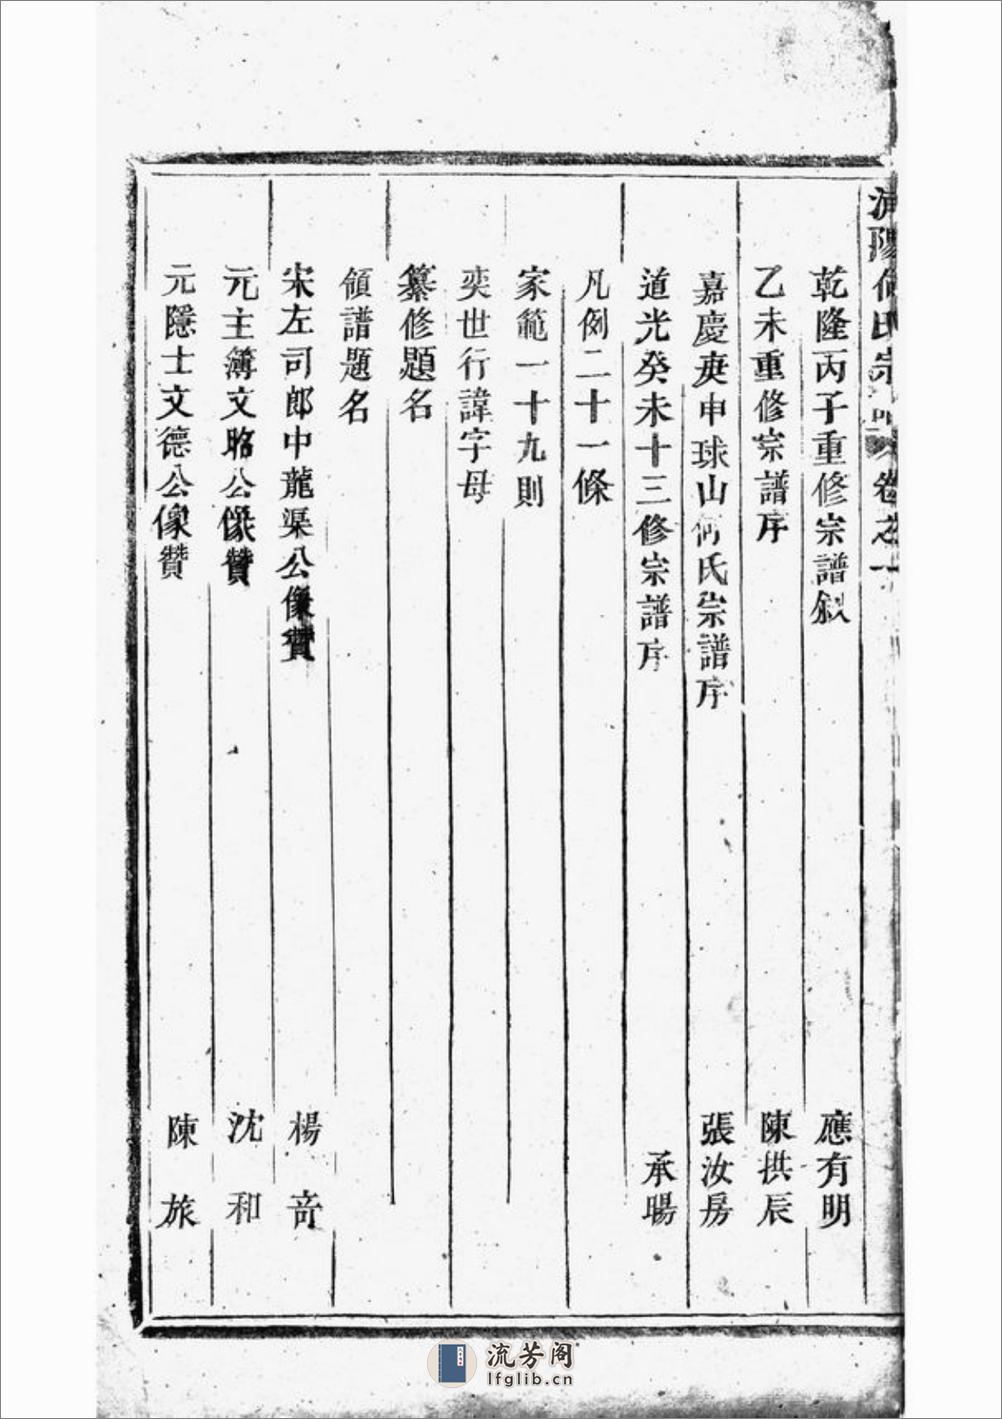 何氏宗譜卷之一
乾隆丙子重修宗譜敘 應有明
乙未重修宗譜序 陳拱辰
嘉慶庚申球山何氏宗譜序 張汝房
道光癸未十三修宗譜序 承暘
凡例二十一條
家範一十九則
奕世行諱字母
纂修題名
領譜題名
宋左司郎中龍渠公像贊 楊奇
元主簿文昭公像贊 沈和
元隱士文德公像贊 陳旅
流芳阁
lfglib.cn